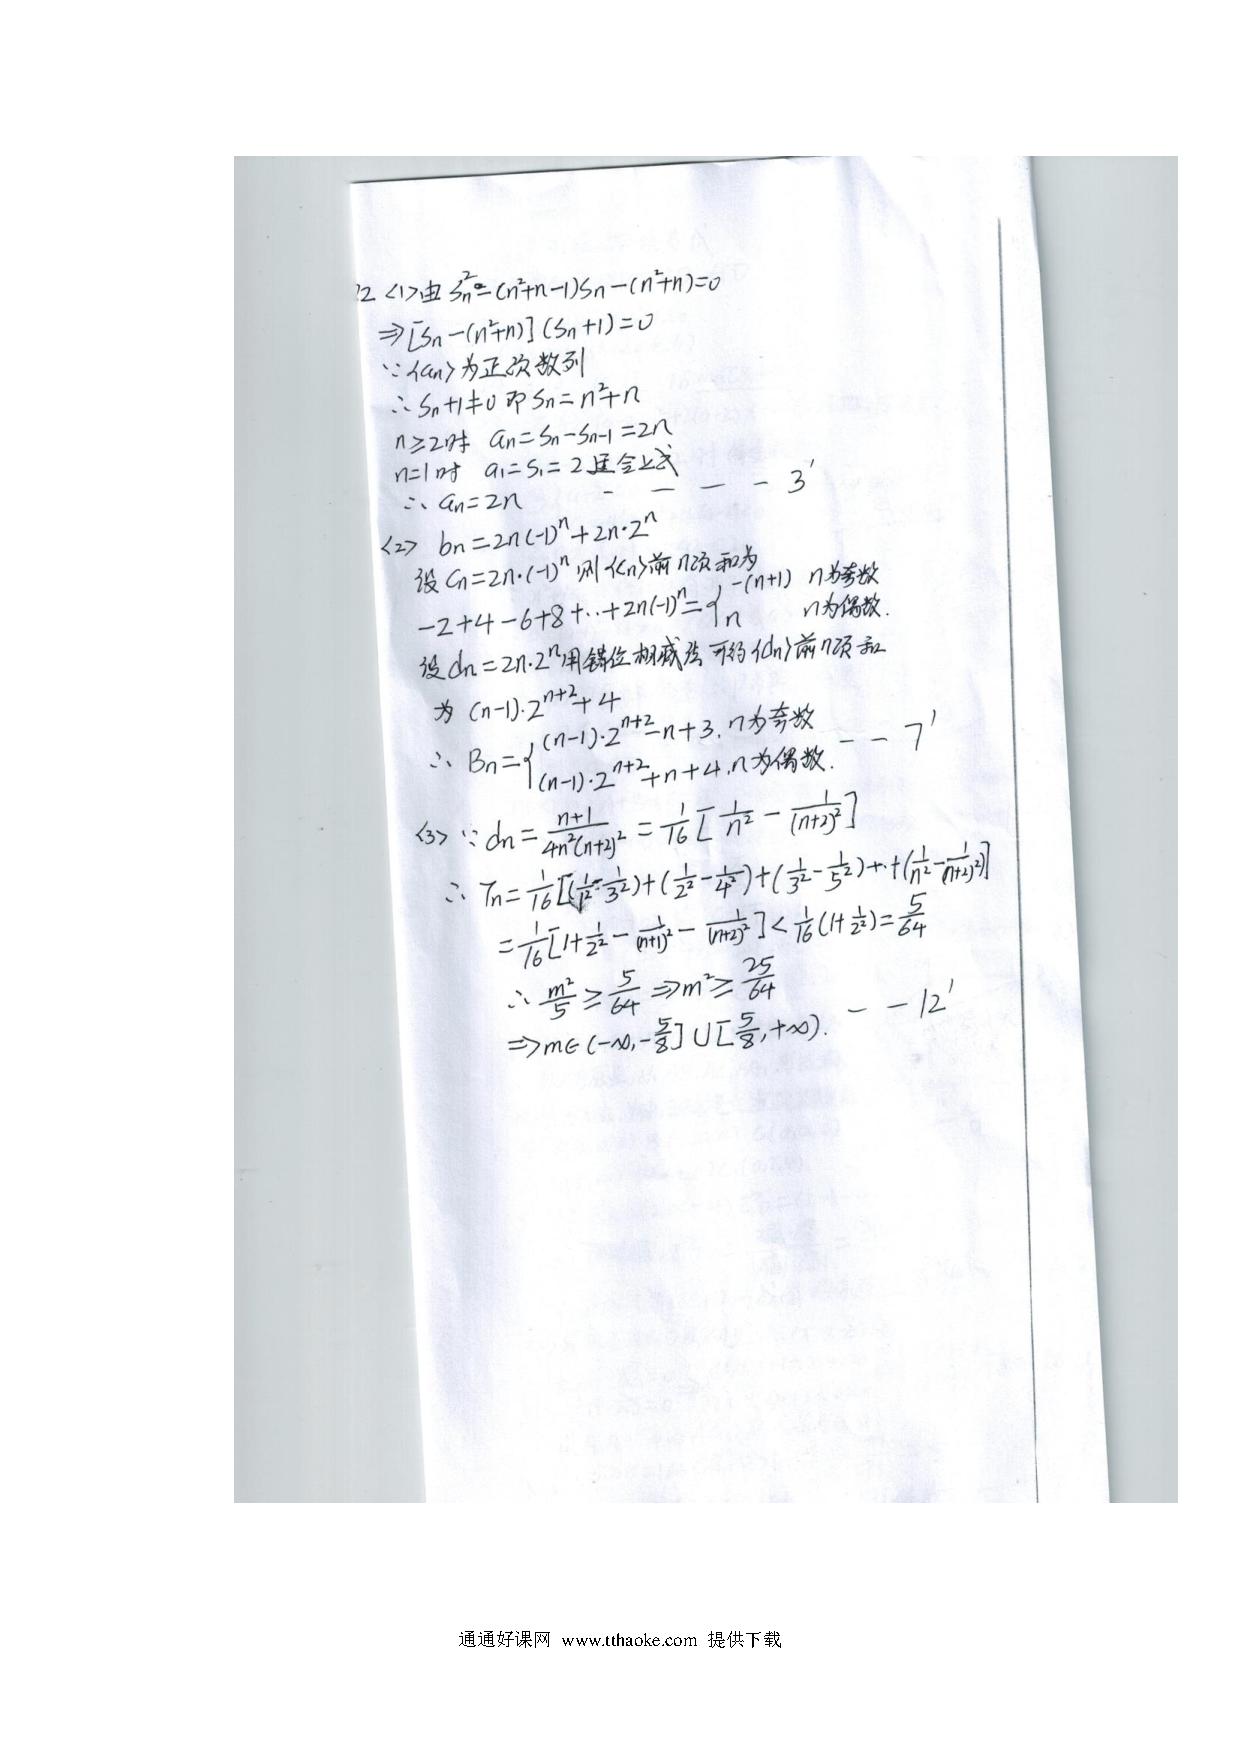 22 <1>由 Sn²-(n²+n-1)Sn-(n²+n)=0
⇒[Sn-(n²+n)](Sn+1)=0
∵{an}为正项数列
∴Sn+1≠0 即 Sn=n²+n
n≥2时 an=Sn-Sn-1=2n
n=1时 a₁=S₁=2 适合上式
∴ an=2n - - - - 3'
<2> bn=2n(-1)ⁿ+2n·2ⁿ
设 Cn=2n·(-1)ⁿ 则{Cn}前n项和为
-2+4-6+8+…+2n(-1)ⁿ={-(n+1) n为奇数
n n为偶数.
设dn=2n·2ⁿ用错位相减法可得{dn}前n项和
为 (n-1)·2ⁿ⁺²+4
∴ Bn={(n-1)·2ⁿ⁺²-n+3, n为奇数
(n-1)·2ⁿ⁺²+n+4, n为偶数. - - 7'
<3> ∵ dn=(n+1)/(4n²(n+2)²)=1/16[1/n²-1/(n+2)²]
∴ Tn=1/16[(1/1²-1/3²)+(1/2²-1/4²)+(1/3²-1/5²)+…+(1/n²-1/(n+2)²)]
=1/16[1+1/2²-1/(n+1)²-1/(n+2)²]<1/16(1+1/2²)=5/64
∴ m²/5≥5/64⇒m²≥25/64
⇒m∈(-∞,-5/8]∪[5/8,+∞). - - 12'
通通好课网 www.tthaoke.com 提供下载